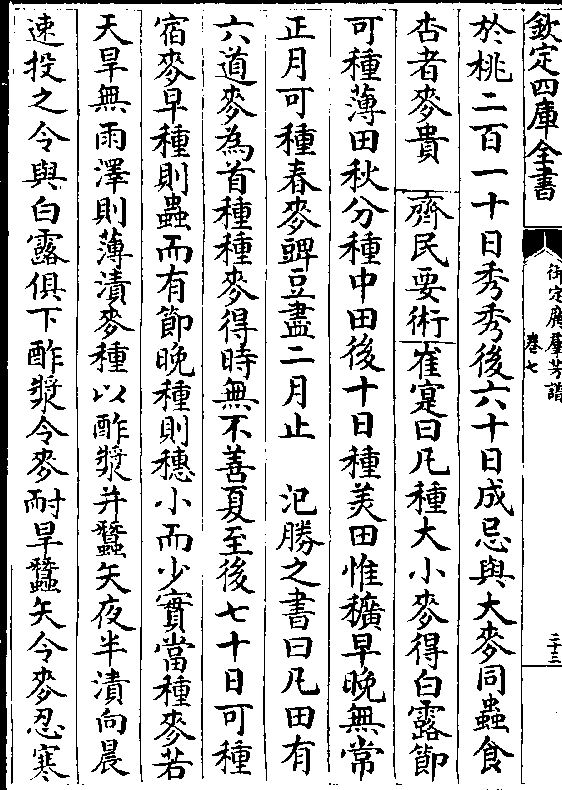 欽定四庫全書
御定廣羣芳譜
卷七
二十三
於桃二百一十日秀秀後六十日成忌與大麥同蟲食
杏者麥貴　齊民要術崔寔曰凡種大小麥得白露節
可種薄田秋分種中田後十日種美田惟穬早晚無常
正月可種春麥豍豆盡二月止　氾勝之書曰凡田有
六道麥為首種種麥得時無不善夏至後七十日可種
宿麥早種則蟲而有節晚種則穗小而少實當種麥若
天旱無雨澤則薄漬麥種以酢漿并蠶矢夜半漬向晨
速投之令與白露俱下酢漿令麥耐旱蠶矢令麥忍寒